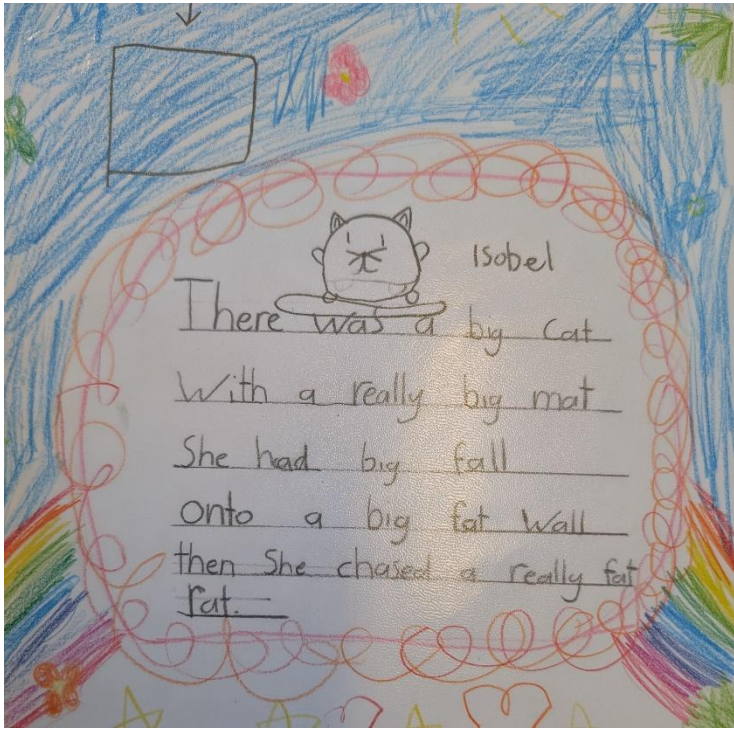 Isobel
There was a big Cat
With a really big mat
She had big fall
onto a big fat Wall
then She chased a really fat
rat.